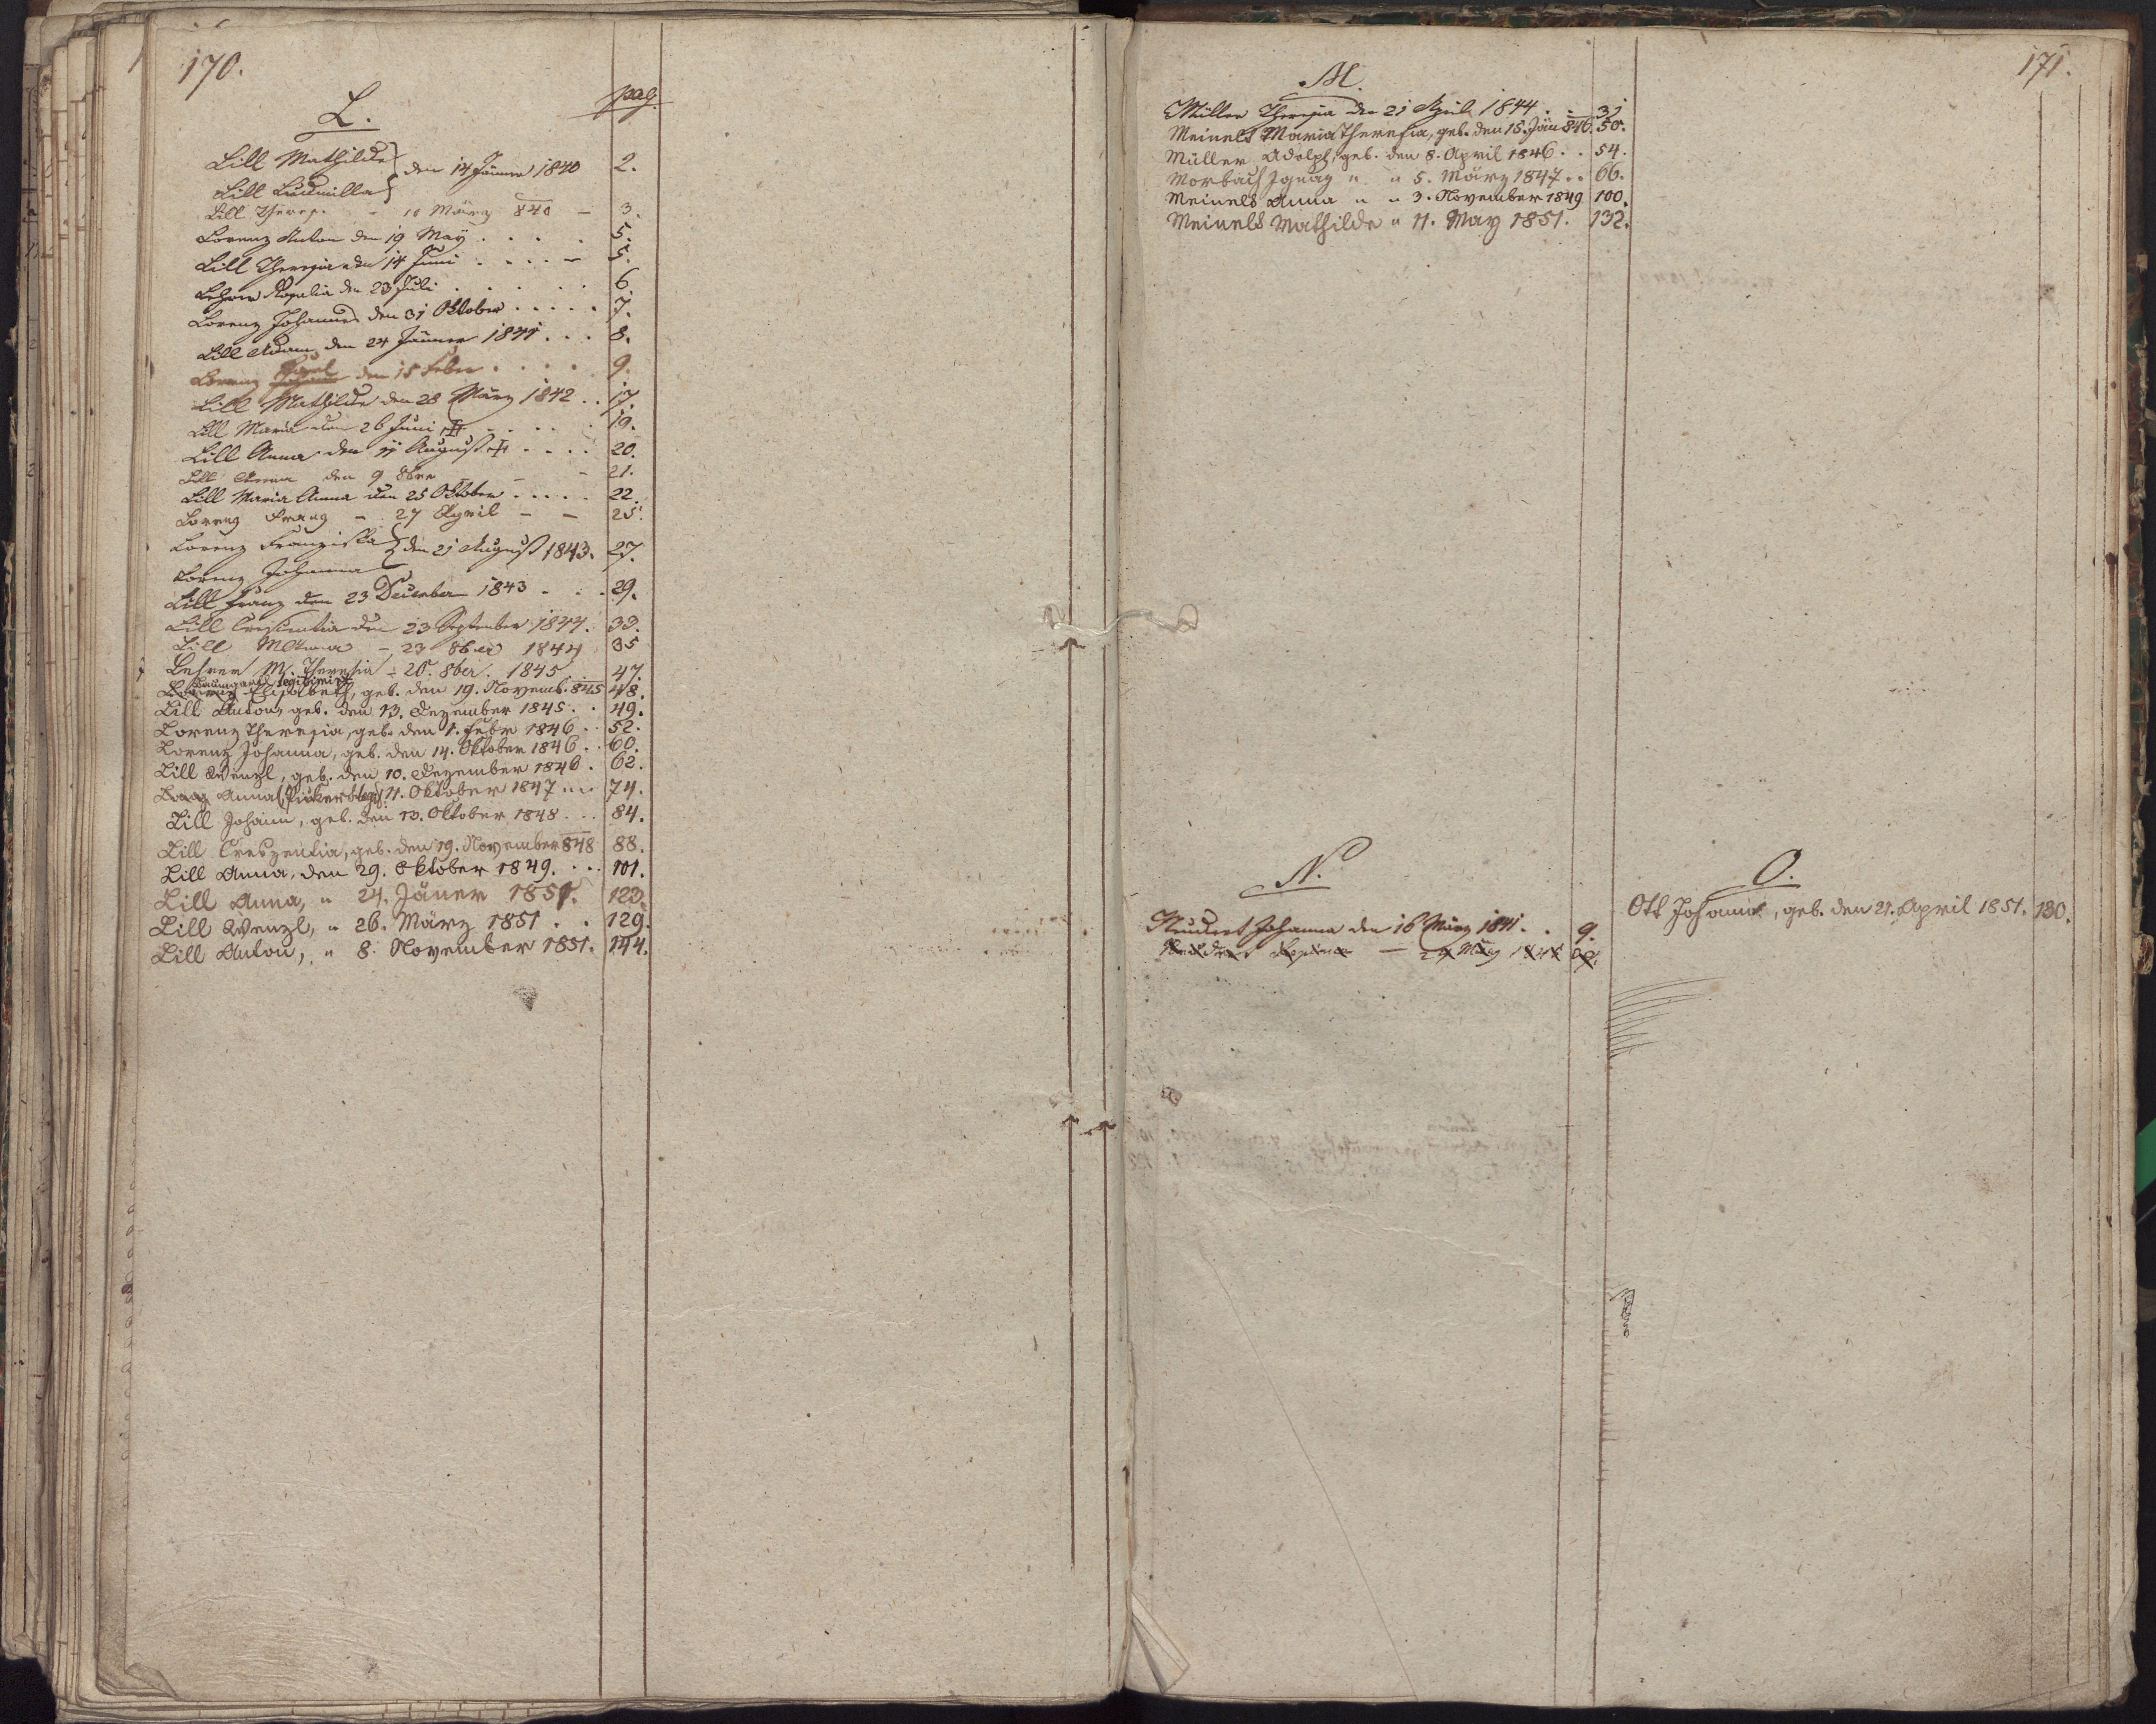 170.
L.
pag.
Lill Mathilde
Lill Ludmilla } den 14 Jänner 1840 2.
Lill Theres. - 10 März 840 - 3.
Lorenz Anton den 19 May . . . . 5.
Lill Theresia den 14 Juni . . . . - 5.
Lehrer Rosalia den 23 Juli . . . . . 6.
Lorenz Johannes den 31 Oktober . . . . . 7.
Lill Adam den 24 Jänner 1841 . . . 8.
Lorenz Karl den 15 Feber . . . . 9.
Lill Mathilde den 28 März 1842 . . 17.
Lill Maria den 26 Juni . . . . 19.
Lill Anna den 11 August . . . . 20.
Lill Anna den 9 8ber - - 21.
Lill Maria Anna den 25 Oktober . . . . . 22.
Lorenz Franz - 27 April - - 25.
Lorenz Franziska
Lorenz Johanna } den 21 August 1843. 27.
Lill Franz den 23 December 1843 . . . 29.
Lill Cresentia den 23 September 1844. 33.
Lill M Anna - 23 8ber 1844 35
Lehrer M. Theresia - 20. 8ber. 1845 47.
Baumgartl legitimirt
Elisabeth, geb. den 19. Novemb. 845 48.
Lill Anton, geb. den 13. Dezember 1845 . . 49.
Lorenz Theresia, geb. den 1. Febr 1846 . . 52.
Lorenz Johanna, geb. den 14. Oktober 1846 . . 60.
Lill Wenzl, geb. den 10. Dezember 1846 . 62.
Anna 11. Oktober 1847 . . . 74.
Lill Johann, geb. den 13. Oktober 1848 . . . 84.
Lill Creszentia, geb. den 19. November 848 88.
Lill Anna, den 29. Oktober 1849. . . . 101.
Lill Anna, " 24. Jäner 1851. 123.
Lill Wenzl, " 26. März 1851 . . 129.
Lill Anton, " 8. November 1851. 144.
171.
M.
Müller Theresia den 21 April 1844 . - 31
Meinelt Maria Theresia, geb. den 15. Jän 846. 50.
Müller Adolph, geb. den 8. April 1846 . . 54.
Morbach Ignaz " " 5. März 1847 . . 66.
Meinelt Anna " " 3. November 1849 100.
Meinelt Mathilde " 11. May 1851. 132.
N.
Neudert Johanna den 16 März 1841 . . 9.
O.
Ott Johann, geb. den 21. April 1851. 130.